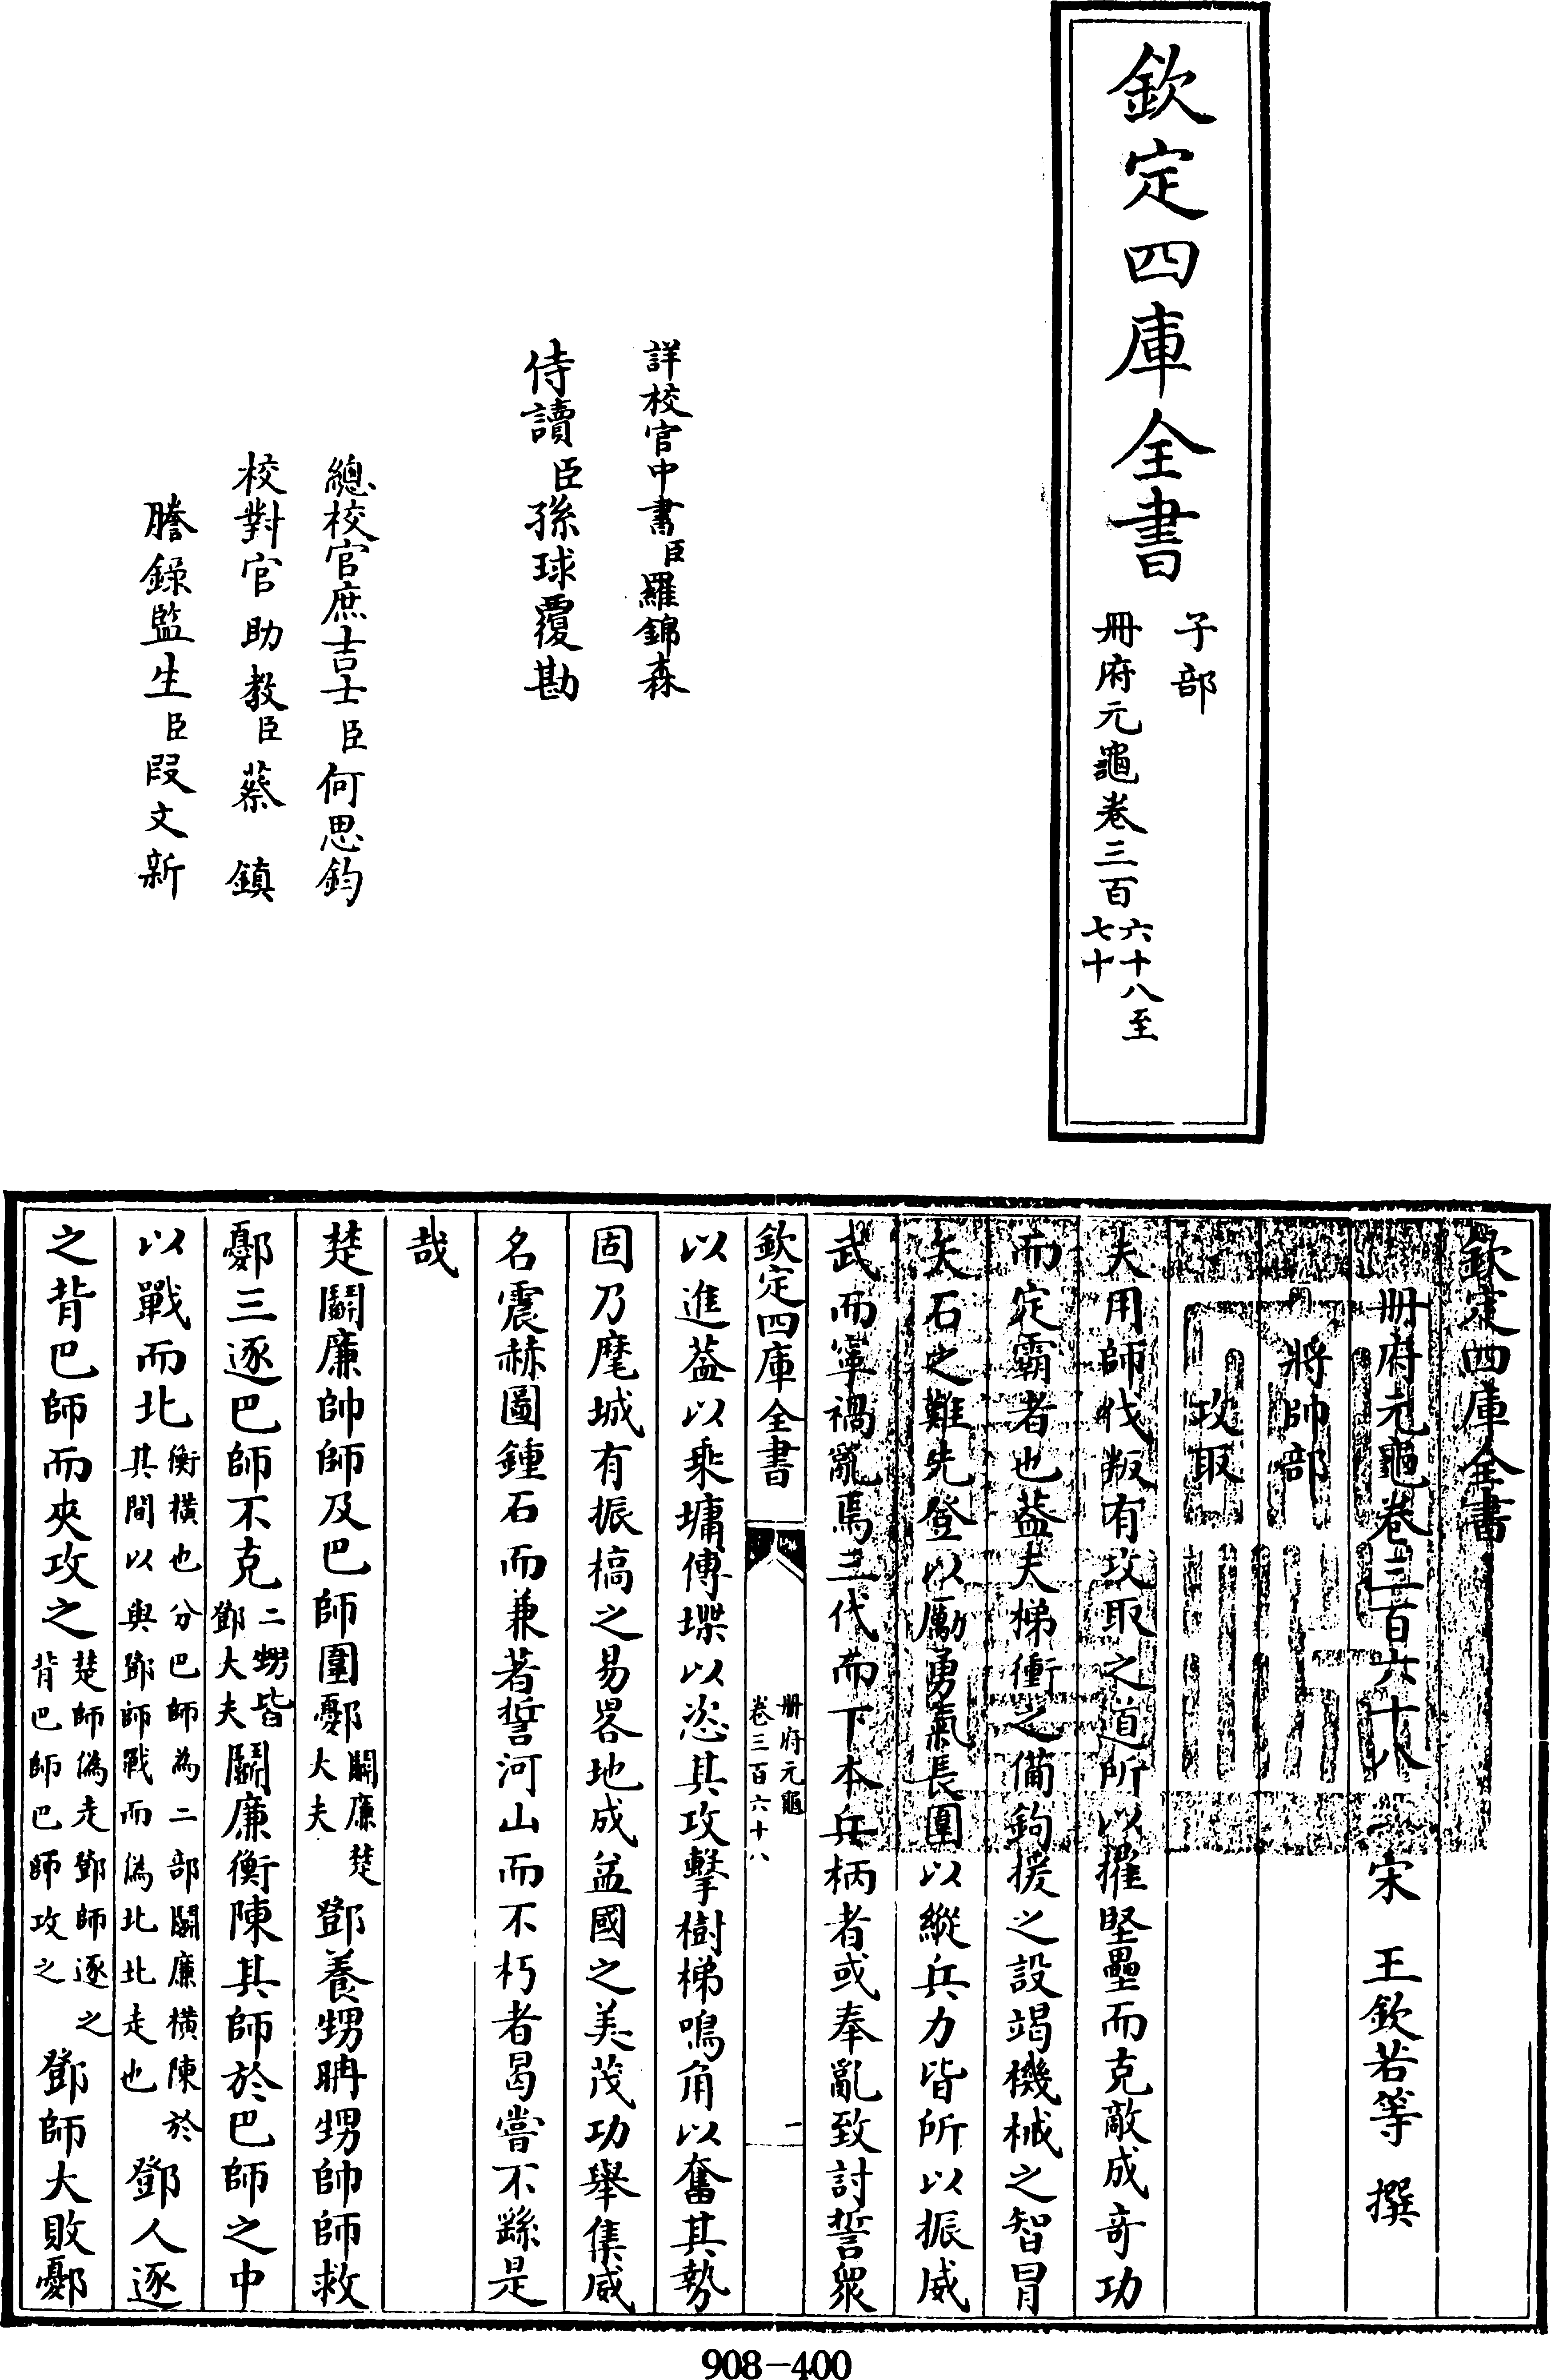 欽定四庫全書
子部
冊府元龜卷三百六十八至
七十
詳校官中書臣羅錦森
侍讀臣孫球覆勘
總校官庶吉士臣何思鈞
校對官助教臣蔡鎮
謄錄監生臣段文新
欽定四庫全書
冊府元龜卷三百六十八 宋 王欽若等 撰
將帥部
攻取
夫用師伐叛有攻取之道所以摧堅壘而克敵成奇功
而定霸者也葢夫梯衝之備鉤援之設竭機械之智冒
矢石之難先登以勵勇氣長圍以縱兵力皆所以振威
武而寧禍亂焉三代而下本兵柄者或奉亂致討誓衆
欽定四庫全書
冊府元龜
卷三百六十八
一
以進葢以乘墉傅堞以恣其攻擊樹梯鳴角以奮其勢
固乃麾城有振槁之易畧地成益國之美茂功舉集威
名震赫圖鍾石而兼著誓河山而不朽者曷嘗不繇是
哉
楚鬭廉帥師及巴師圍鄾鬭廉楚大夫鄧養甥聃甥帥師救
鄾三逐巴師不克二甥皆鄧大夫鬭廉衡陳其師於巴師之中
以戰而北衡橫也分巴師為二部鬭廉橫陳於其間以與鄧師戰而偽北北走也鄧人逐
之背巴師而夾攻之楚師偽走鄧師逐之背巴師巴師攻之鄧師大敗鄾
908-400